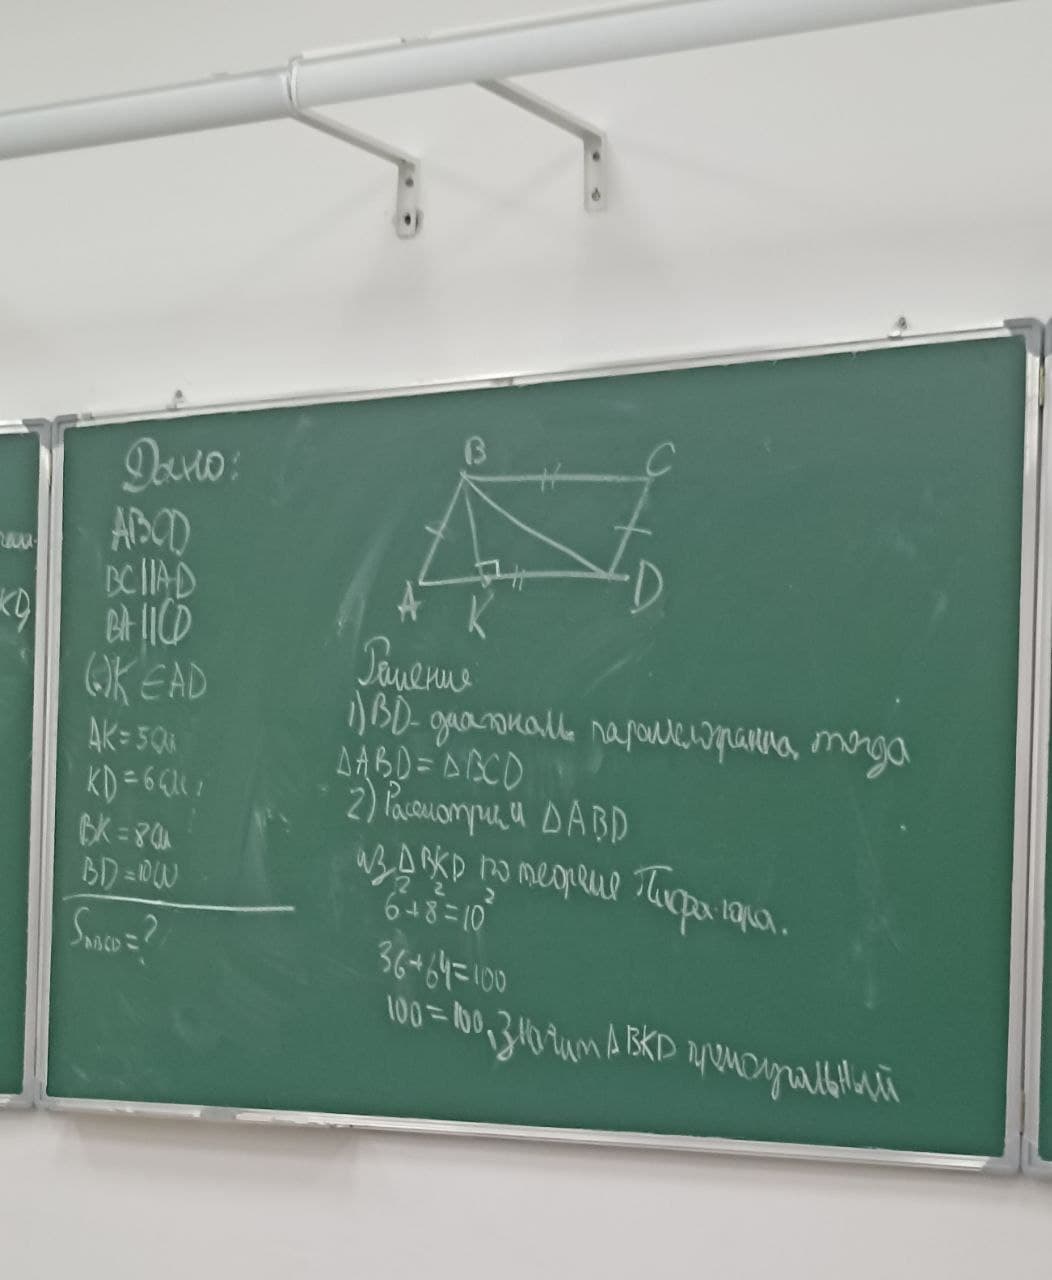 Дано:
ABCD
BC||AD
BA||CD
(·)K ∈ AD
AK=5см
KD=6см,
BK=8см
BD=10см
S_ABCD=?
B
C
A
K
D
Решение
1) BD-диагональ параллелограмма, тогда
ΔABD=ΔBCD
2) Рассмотрим ΔABD
из ΔBKD по теореме Пифагора.
6²+8²=10²
36+64=100
100=100, Значит ΔBKD прямоугольный
KD